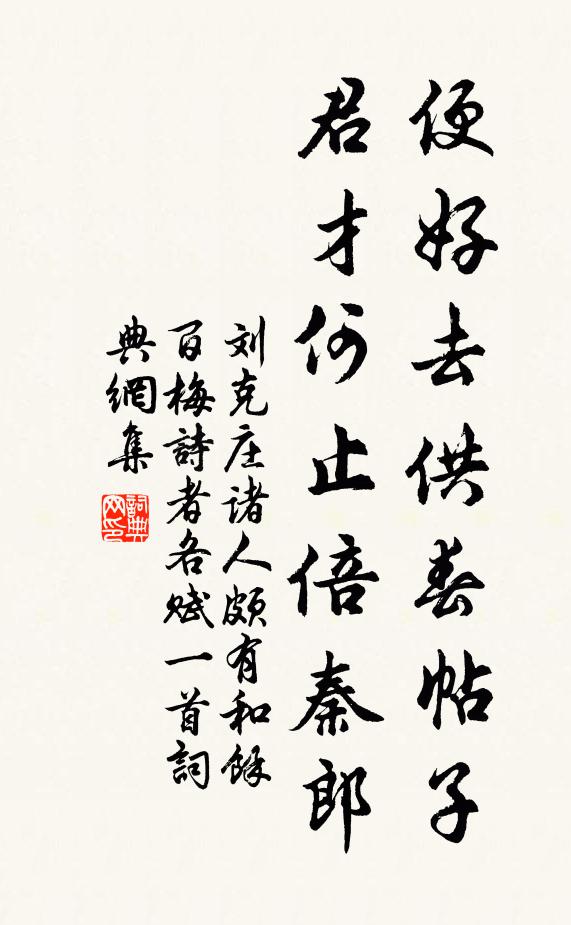 便好去供春帖子
君才何止倍秦郎
刘克庄诸人颇有和馀
百梅詩者各赋一首詞
典網集
詞典网印